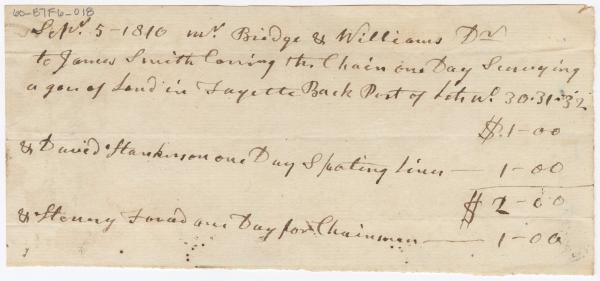 60-87F6-018
Sepr. 5 - 1810 mr. Bridge & Williams Dr
to James Smith Caring the Chain one Day Surveying
a gore of Land in Fayette Back Part of Lots No. 30-31-32
$1-00
& David Stankerson one Day Spoting lines — 1-00
$2-00
& one Day for Chainman — 1-00